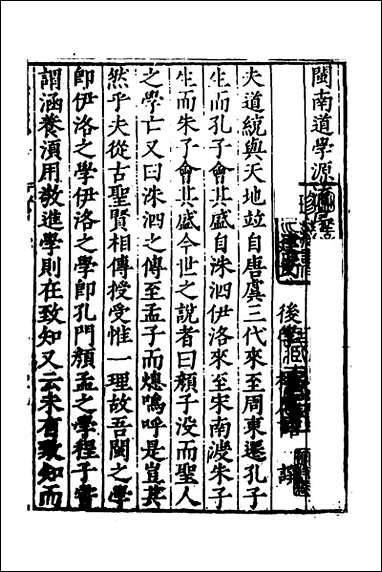 閩南道學源流
後學
譔
夫道統與天地竝自唐虞三代來至周東遷孔子
生而孔子會其盛自洙泗伊洛來至宋南渡朱子
生而朱子會其盛今世之說者曰顏子没而聖人
之學亡又曰洙泗之傳至孟子而熄嗚呼是豈其
然乎夫從古聖賢相傳授受惟一理故吾閩之學
卽伊洛之學伊洛之學卽孔門顏孟之學程子嘗
謂涵養湏用敬進學則在致知又云未有致知而